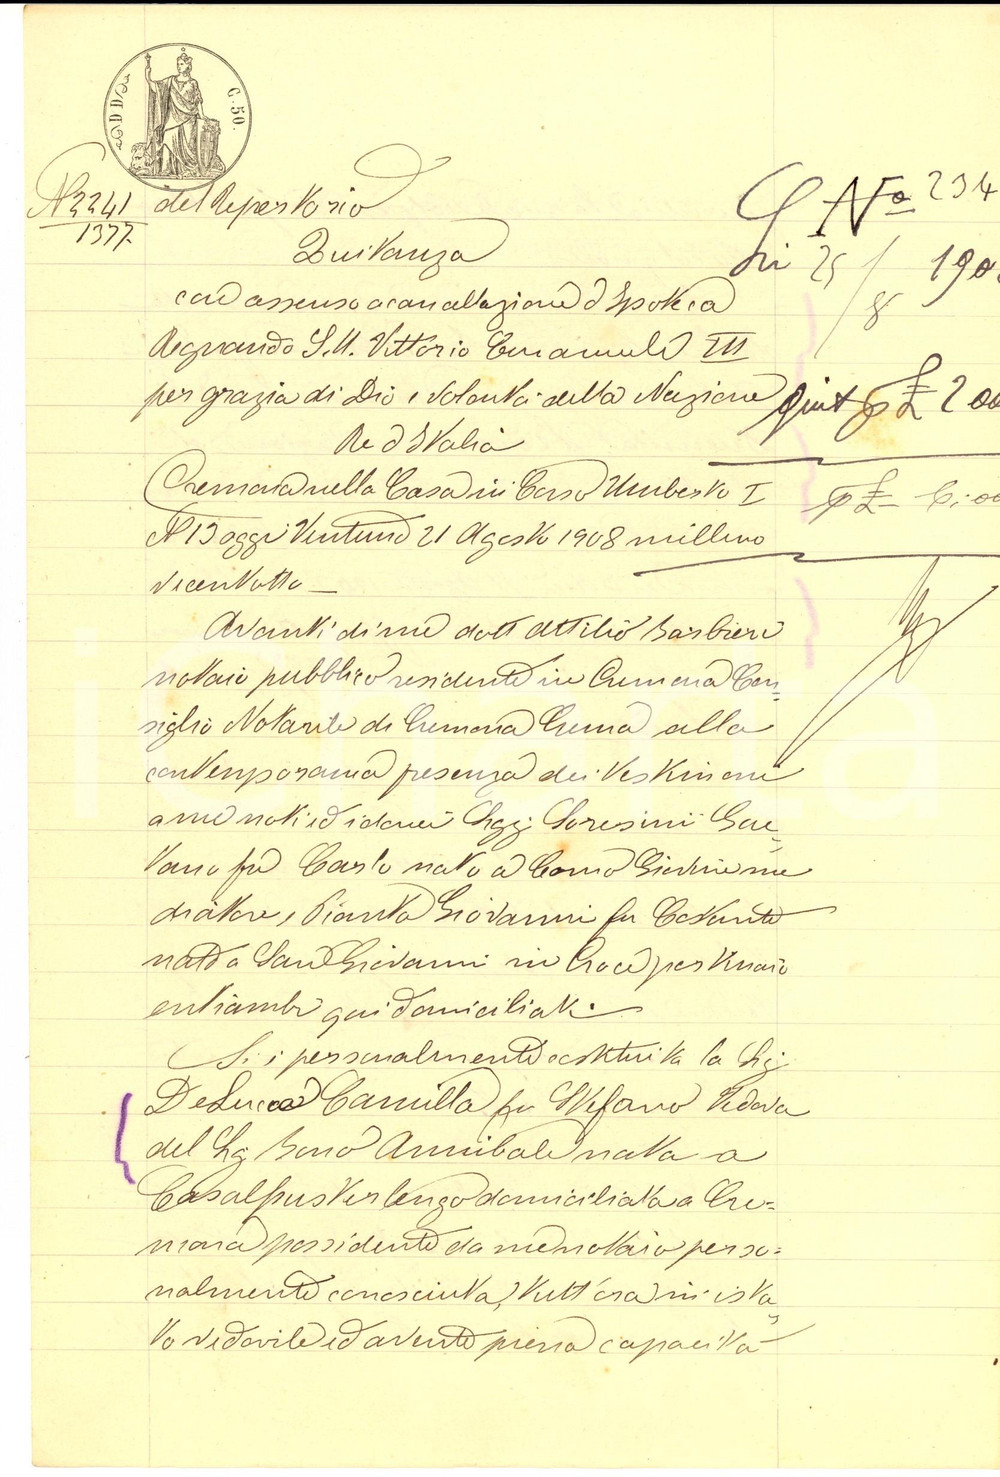 C. 50.
N 2241 del Repertorio
1377.
Quitanza
con assenso a cancellazione d'Ipoteca
Regnando S. M. Vittorio Emanuele III
per grazia di Dio e Volontà della Nazione
Re d'Italia
Cremona nella Casa in Corso Umberto I
N 13 oggi Ventuno 21 Agosto 1908 milleno
vecentotto
Avanti di me dott Attilio Barbieri
notaio pubblico residente in Cremona Con=
siglio Notarile di Cremona Crema alla
contemporanea presenza dei testimoni
a me noti ed idonei Sigg. Soresini Gae=
tano fu Carlo nato a Corno Giovine me
diatore, Pianta Giovanni fu Costante
nato a San Giovanni in Croce portinaio
entrambi qui domiciliati.
Si è personalmente costituita la Sig
De Lucca Camilla fu Stefano Vedova
del Sig Bono Annibale nata a
Casalpusterlengo domiciliata a Cre=
mona possidente da me notaio perso=
nalmente conosciuta, tutt'ora in ista=
to vedovile ed avente piena capacità
N° 234
li 25/8 190
quit p £ 200
p £